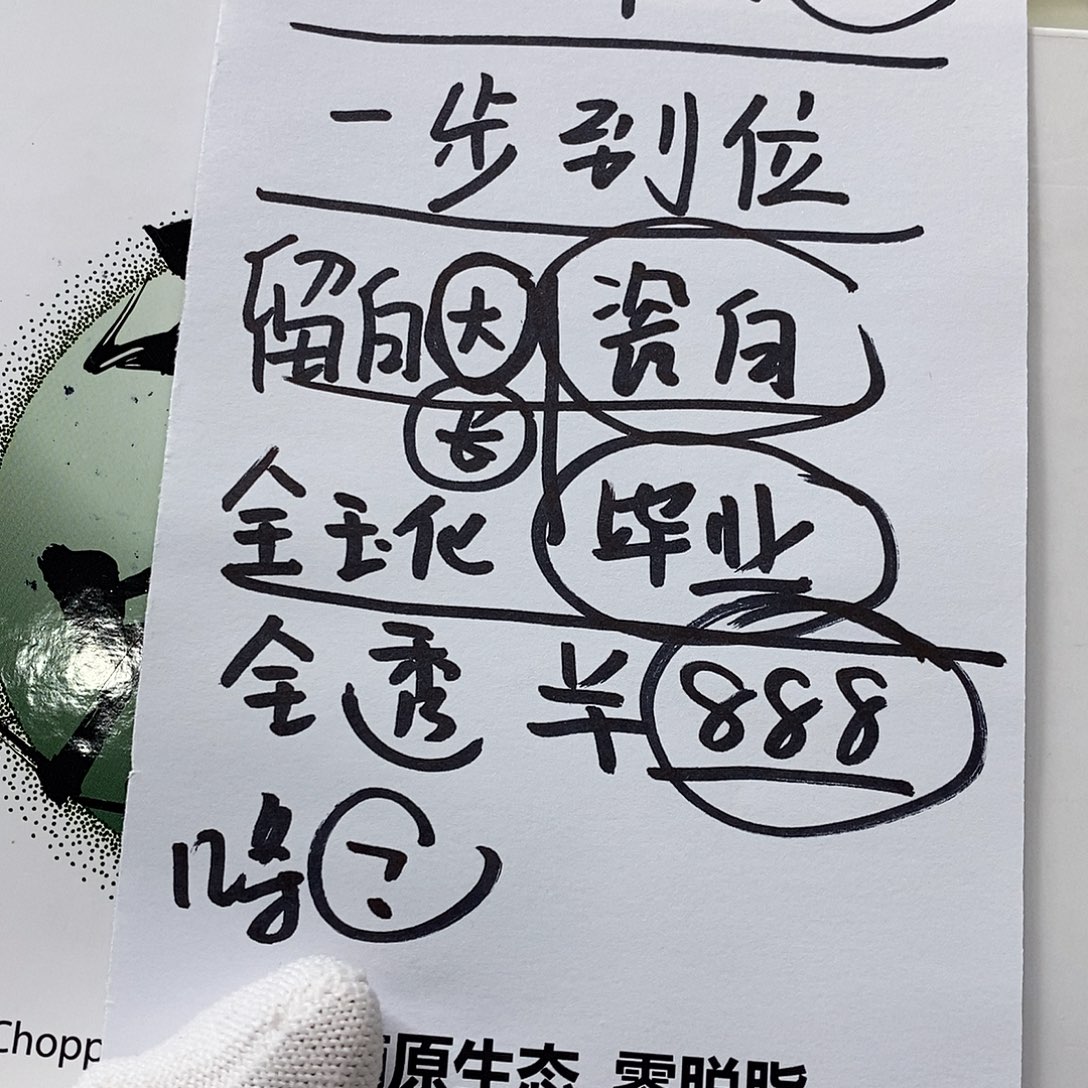 一步到位
留白大 瓷白
长
全玉化 毕业
全透 半888
?
Chopp
原生态 零脱脂